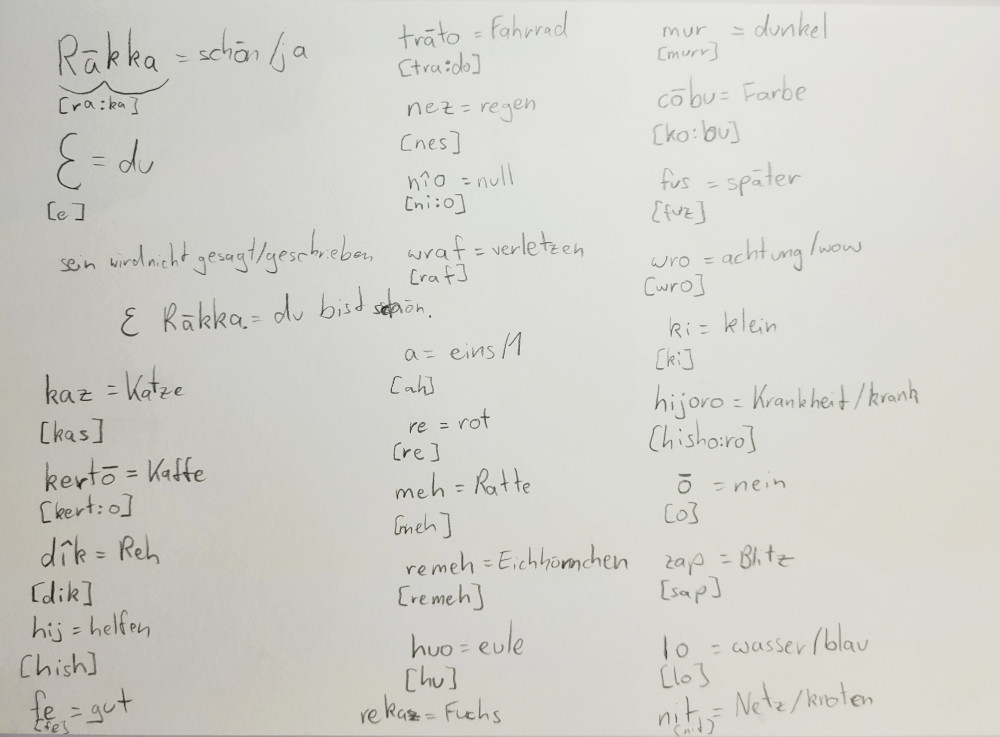 Rākka = schön/ja
[ra:ka]
Ɛ = du
[e]
sein wird nicht gesagt/geschrieben
Ɛ Rākka. = du bist schön.
kaz = Katze
[kas]
kertō = Kaffe
[kert:o]
dîk = Reh
[dik]
hij = helfen
[hish]
fe = gut
[fe]
trāto = Fahrrad
[tra:do]
nez = regen
[nes]
nîo = null
[ni:o]
wraf = verletzen
[raf]
a = eins/1
[ah]
re = rot
[re]
meh = Ratte
[meh]
remeh = Eichhörnchen
[remeh]
huo = eule
[hu]
rekaz = Fuchs
mur = dunkel
[murr]
cōbu = Farbe
[ko:bu]
fus = später
[fuz]
wro = achtung/wow
[wro]
ki = klein
[ki]
hijoro = Krankheit/krank
[hisho:ro]
ō = nein
[o]
zap = Blitz
[sap]
lo = wasser/blau
[lo]
nit = Netz/knoten
[nid]